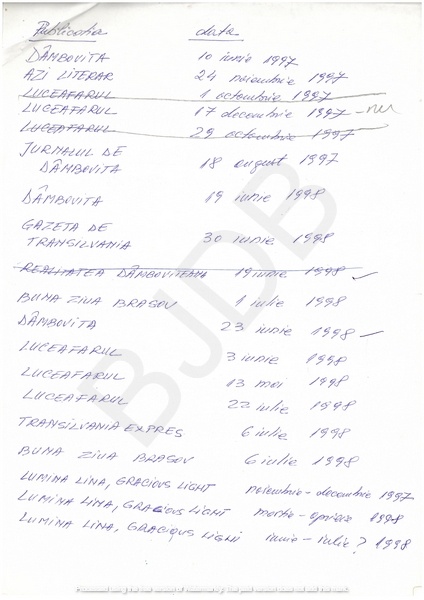 Publicatia data
DÂMBOVITA 10 iunie 1997
AZI LITERAR 24 noiembrie 1997
LUCEAFARUL 1 octombrie 1997
LUCEAFARUL 17 decembrie 1997 - nu
LUCEAFARUL 29 octombrie 1997
JURNALUL DE
DÂMBOVITA 18 august 1997
DÂMBOVITA 19 iunie 1998
GAZETA DE
TRANSILVANIA 30 iunie 1998
REALITATEA DÂMBOVITEANA 19 iunie 1998
BUNA ZIUA BRASOV 1 iulie 1998
DÂMBOVITA 23 iunie 1998
LUCEAFARUL 3 iunie 1998
LUCEAFARUL 13 mai 1998
LUCEAFARUL 22 iulie 1998
TRANSILVANIA EXPRES 6 iulie 1998
BUNA ZIUA BRASOV 6 iulie 1998
LUMINA LINA, GRACIOUS LIGHT noiembrie - decembrie 1997
LUMINA LINA, GRACIOUS LIGHT martie - aprilie 1998
LUMINA LINA, GRACIOUS LIGHT iunie - iulie ? 1998
BJDB